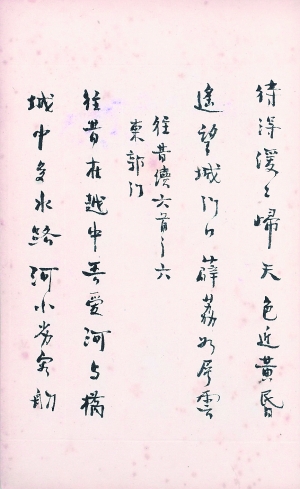 待得緩々歸天色近黃昏
遙望城門口薜荔如層雲
往昔續六首之六
東郭門
往昔在越中吾愛河与橋
城中多水路河小劣容舠